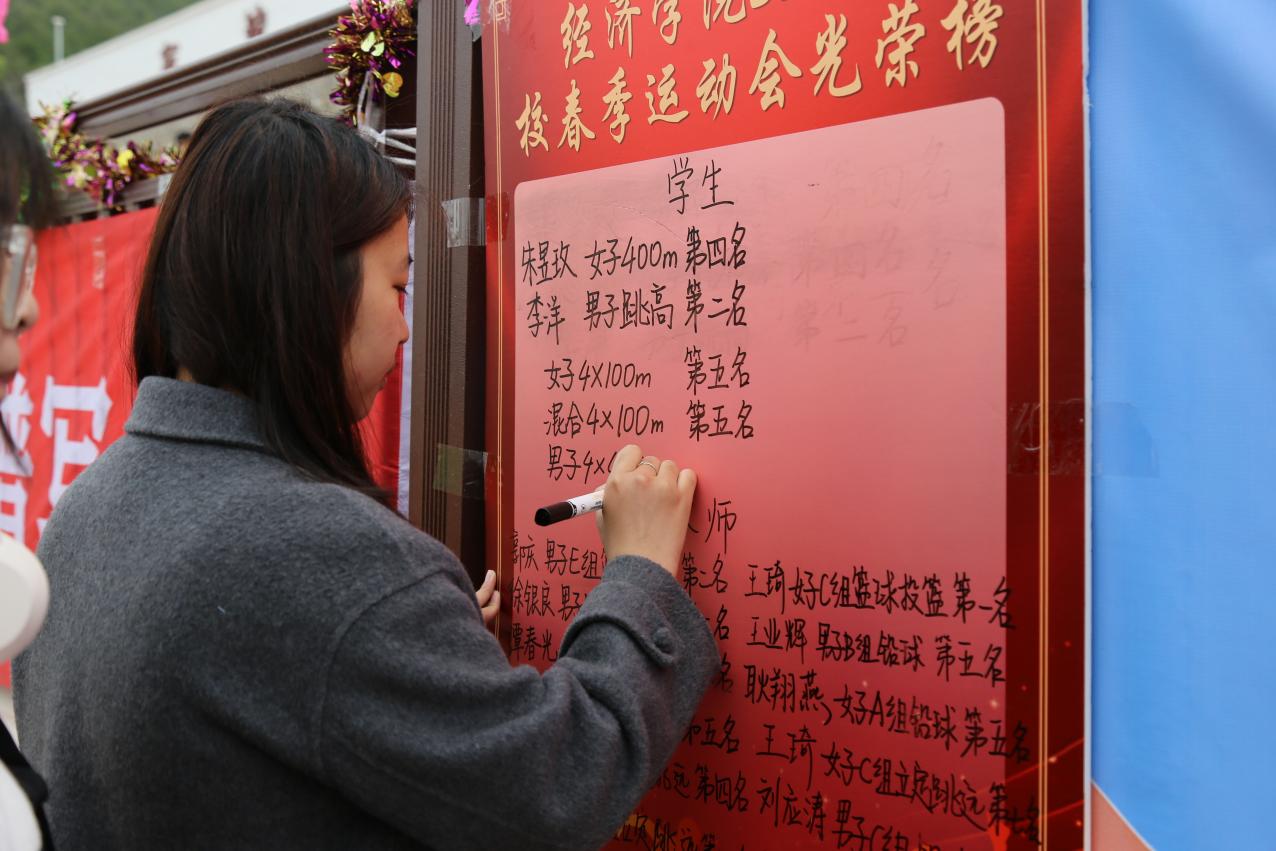 经济学院
校春季运动会光荣榜
学生
朱昱玫 女子400m 第四名
李洋 男子跳高 第二名
女子4×100m 第五名
混合4×100m 第五名
男子4×
师
庆 男子E组 第二名 王琦 女子C组篮球投篮 第一名
徐银良 男子 名 王业辉 男子B组铅球 第五名
谭春光 名 耿翔燕 女子A组铅球 第五名
第五名 王琦 女子C组立定跳远 第七名
跳远 第四名 刘应涛 男子C组